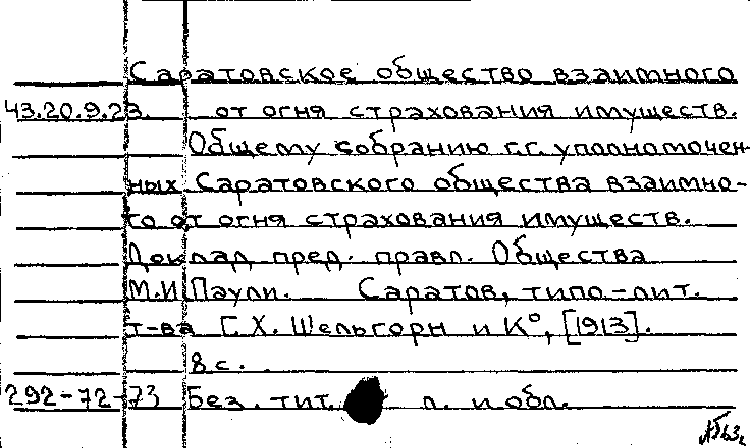 Саратовское общество взаимного
43.20.9.23. от огня страхования имуществ.
Общему собранию г.г. уполномочен-
ных Саратовского общества взаимно-
го от огня страхования имуществ.
Доклад пред. правл. Общества
М.И. Паули. Саратов, типо-лит.
т-ва Г. Х. Шельгорн и К°, [1913].
8 с.
292-72-73 Без. тит. л. и обл.